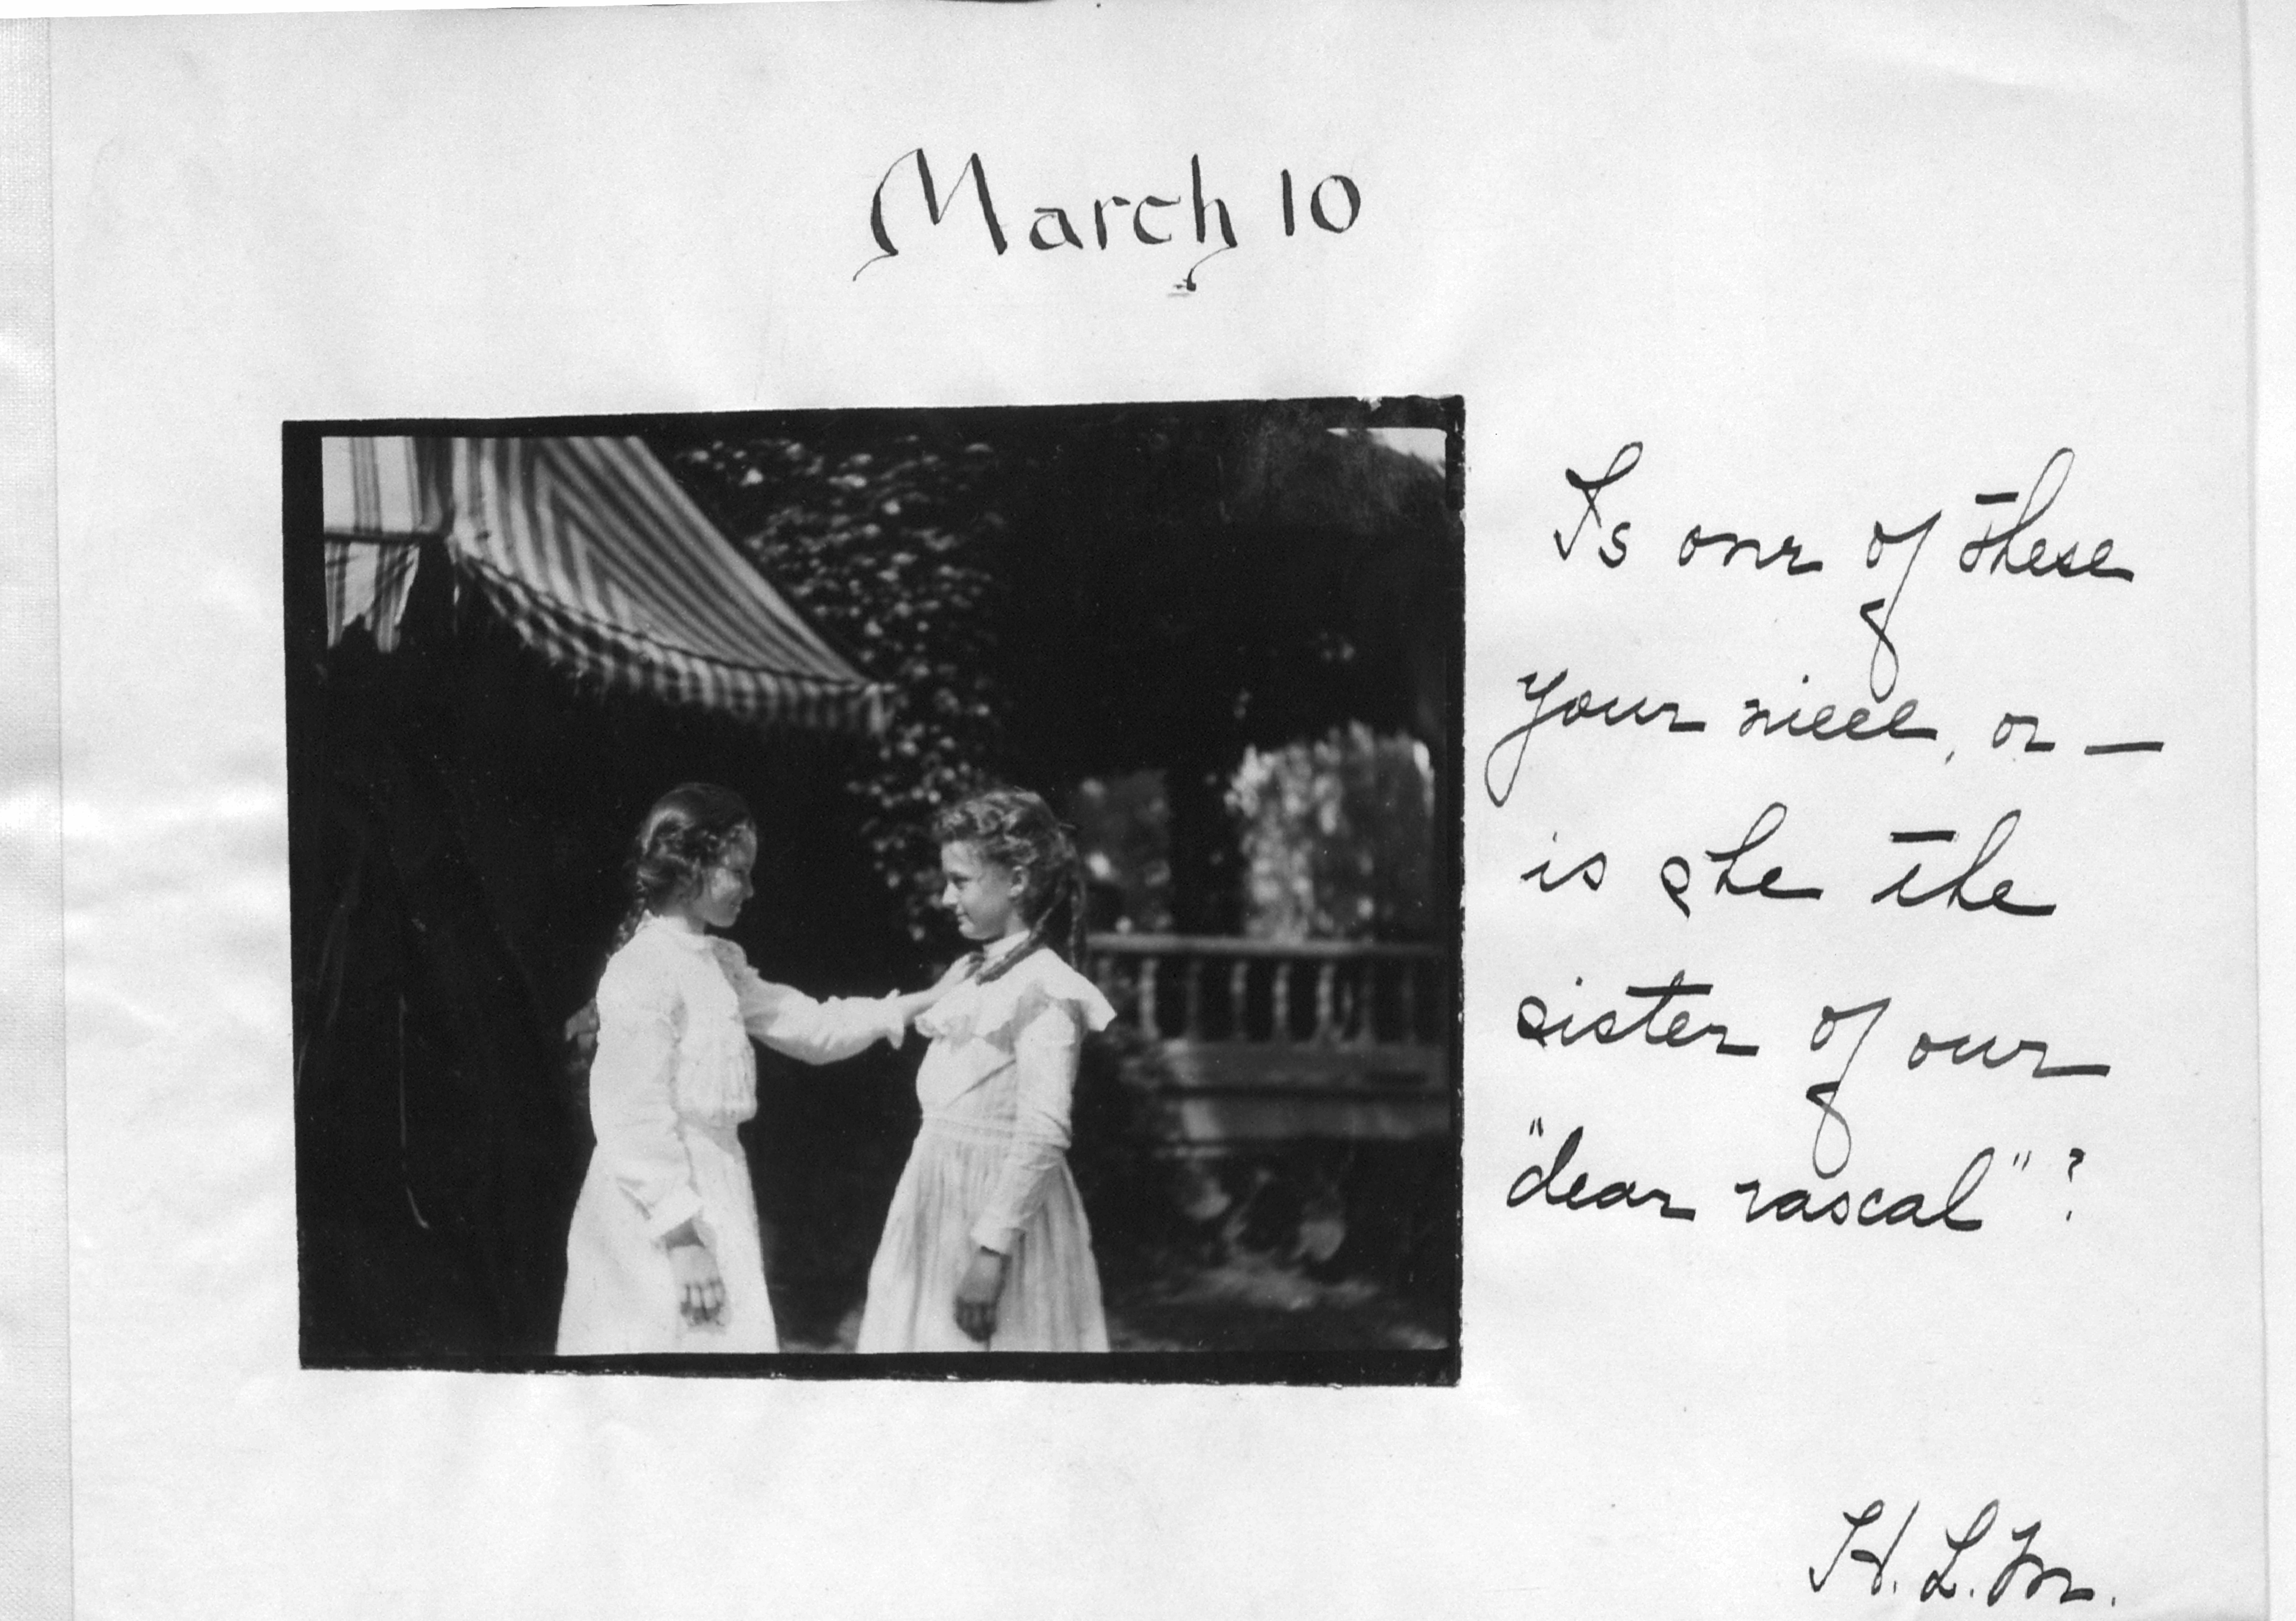 March 10
Is one of these
your niece, or —
is she the
sister of our
"dear rascal"?
H. L. M.